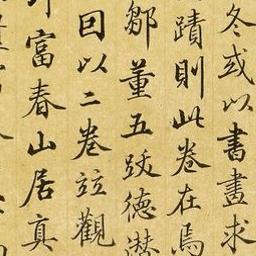 冬或以書畫求
蹟則此卷在焉
鄒董五跋德潛
回以二卷竝觀
富春山居真